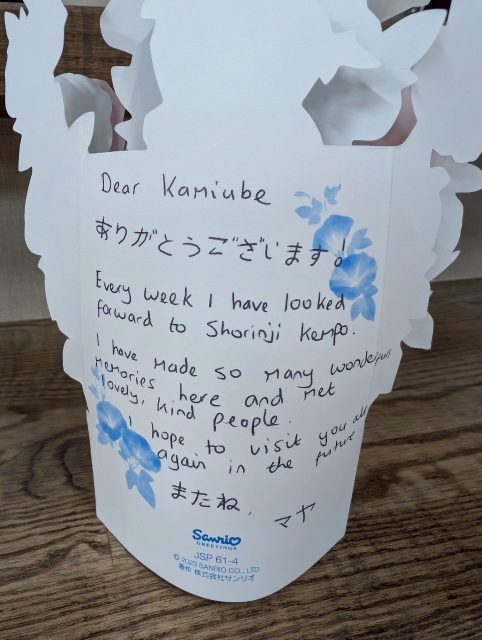 Dear Kamiube
ありがとうございます!
Every week I have looked
forward to Shorinji Kempo.
I have made so many wonderfull
memories here and met
lovely, kind people.
I hope to visit you all
again in the future
またね,
マヤ
Sanrio
GREETINGS
JSP 61-4
© 2023 SANRIO CO., LTD.
著作 株式会社サンリオ